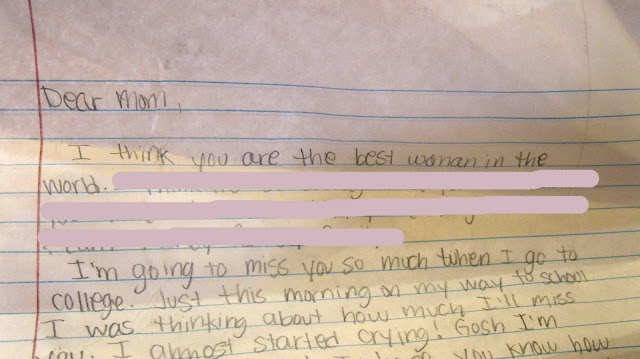 Dear Mom,
I think you are the best woman in the
world.
I'm going to miss you so much when I go to
college. Just this morning on my way to school
I was thinking about how much I'll miss
you. I almost started crying! Gosh I'm
you know how